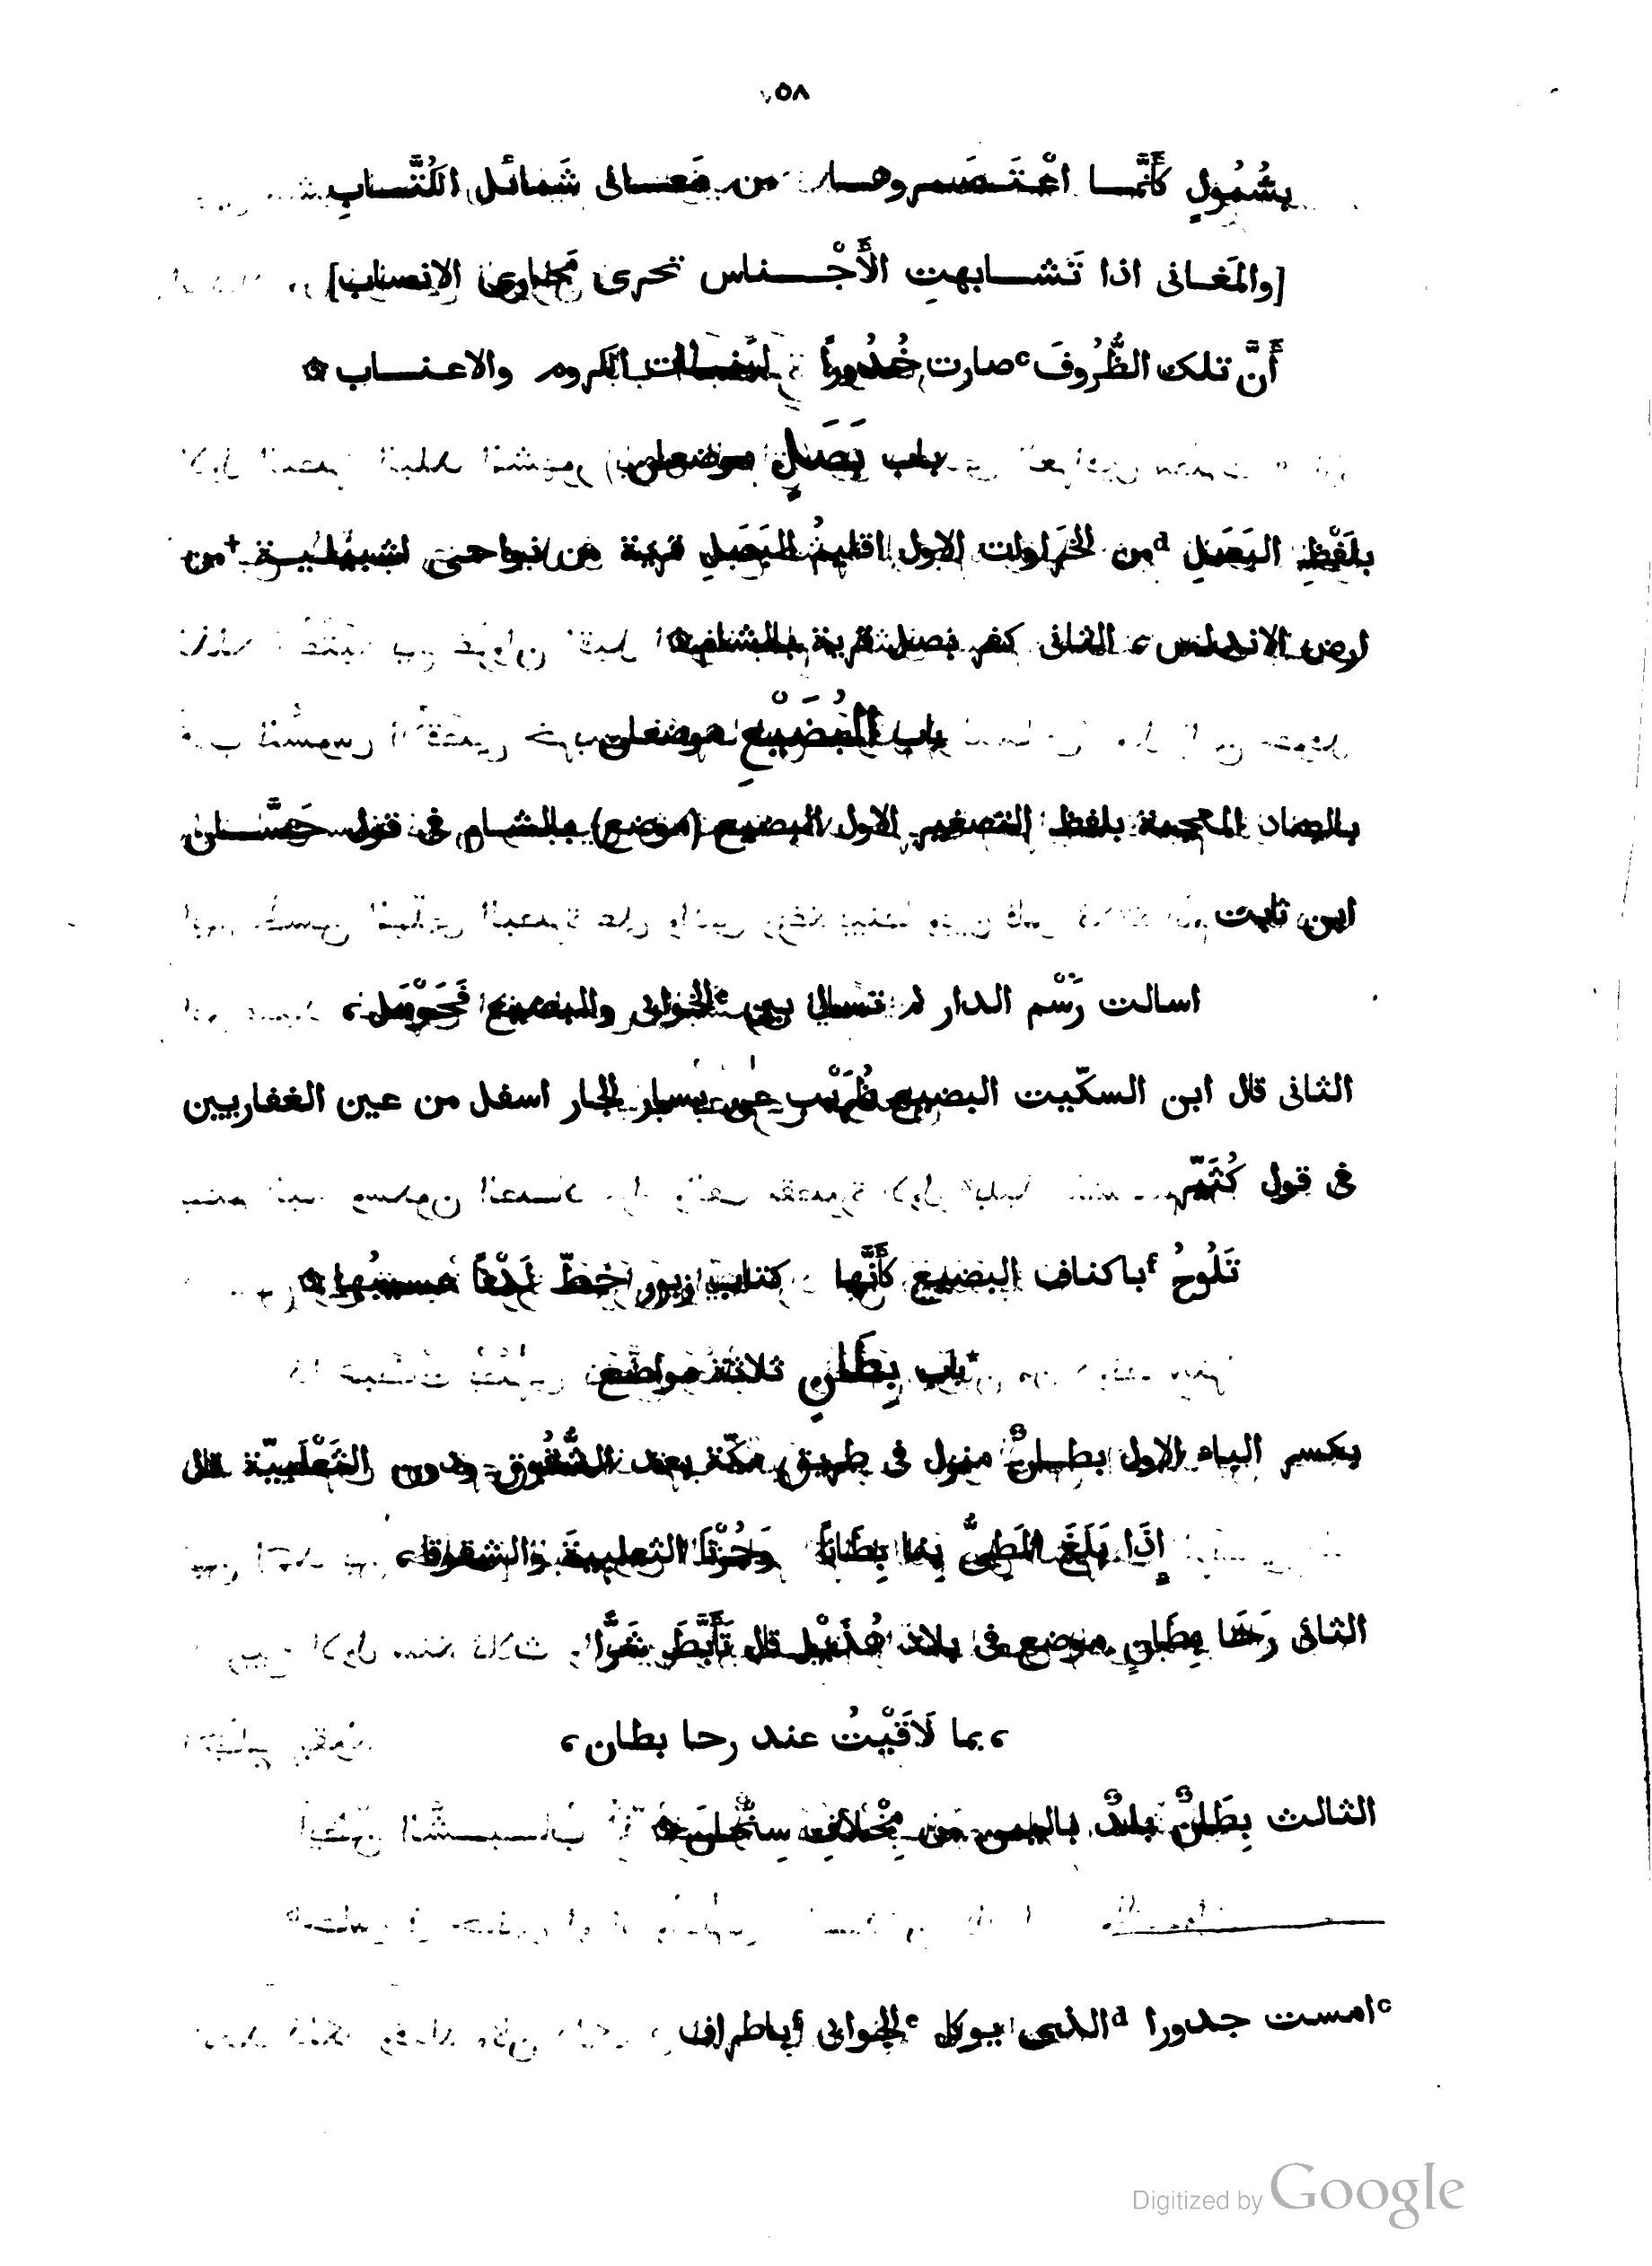 ٥٨
بشُمُولٍ كأَنَّما اعْتَصَروها من مَعانى شَمائل الكُتَّاب
[والمَغانى اذا تَشابهتِ الأَجْناس تجرى مَجارى الانساب]
أَنَّ تلك الظُّرُوفَ ᶜصارت خُدُورًا لبَنات الكروم والاعناب ✩
باب بَصَلٍ موضعان
بلَفْظِ البَصَلِ ᵈمن الخَراوات الاول اقليمُ البَصَلِ قرية من نواحى اشبيلية †من
ارض الاندلس، الثانى كفر بصل قرية بالشام✩
باب البُضَيْعِ موضعان
بالضاد المعجمة بلفظ التصغير الاول البضيع (موضع) بالشام فى قول حَسَّان
ابن ثابت
اسالت رَسْم الدار ام تسال بين ᵉالجوابى والبضيع فَحَوْمَل،
الثانى قال ابن السكّيت البضيع ظُرَيْب عن يسار الجار اسفل من عين الغفاريين
فى قول كُثَيّر
تَلُوحُ ᶠباكناف البضيع كأَنَّها كتاب زبور خطّ لَدْنًا عسيبُها✩
*باب بِطَانٍ ثلاثة مواضع
بكسر الباء الاول بطانٌ منزل فى طريق مكّة بعد الشُّقُوق ودون الثَعْلَبيّة قال
إِذَا بَلَغَ المَطِىُّ بِنا بِطَانًا وَجُزْنَا الثعلبية والشقوقا،
الثانى رَحَا بِطَانٍ موضع فى بلاد هُذَيْل قال تَأَبَّطَ شَرًّا
، بما لَاقَيْتُ عند رحا بطان،
الثالث بِطَانٌ بلدٌ باليمن من مِخْلافِ سِنْحَان✩
ᶜامست جدورا ᵈالذى يوكل ᵉالجوابى ᶠباطراف
Digitized by Google